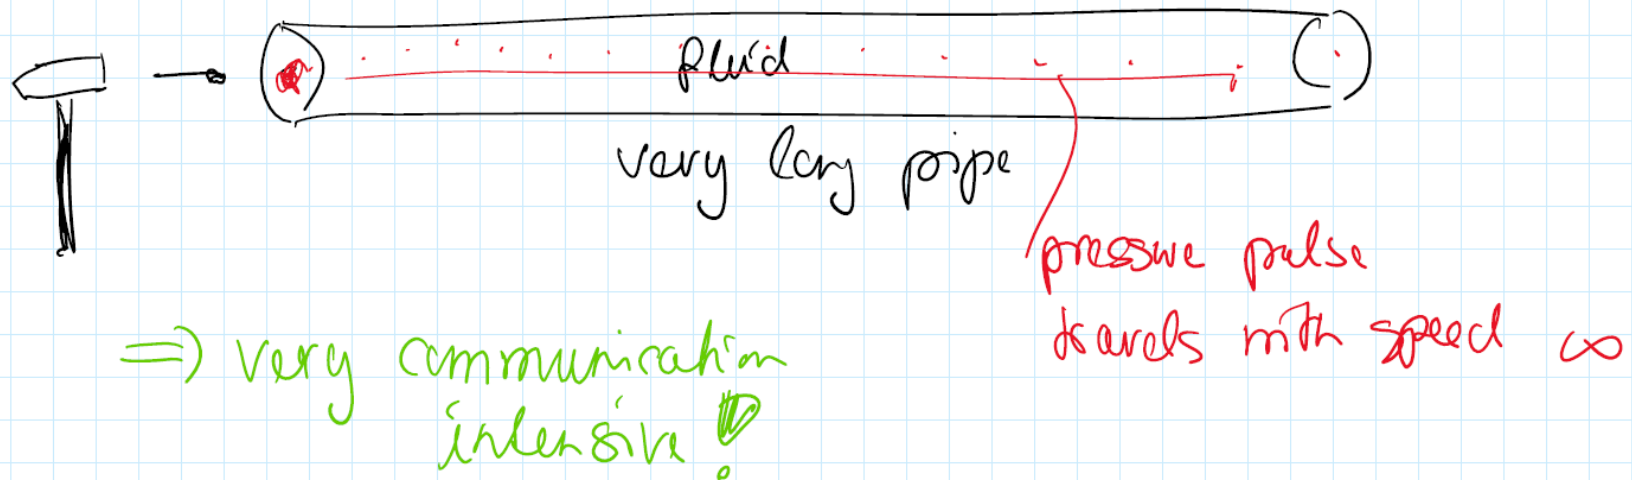 fluid
very long pipe
pressure pulse
travels with speed ∞
=> very communication
intensive!